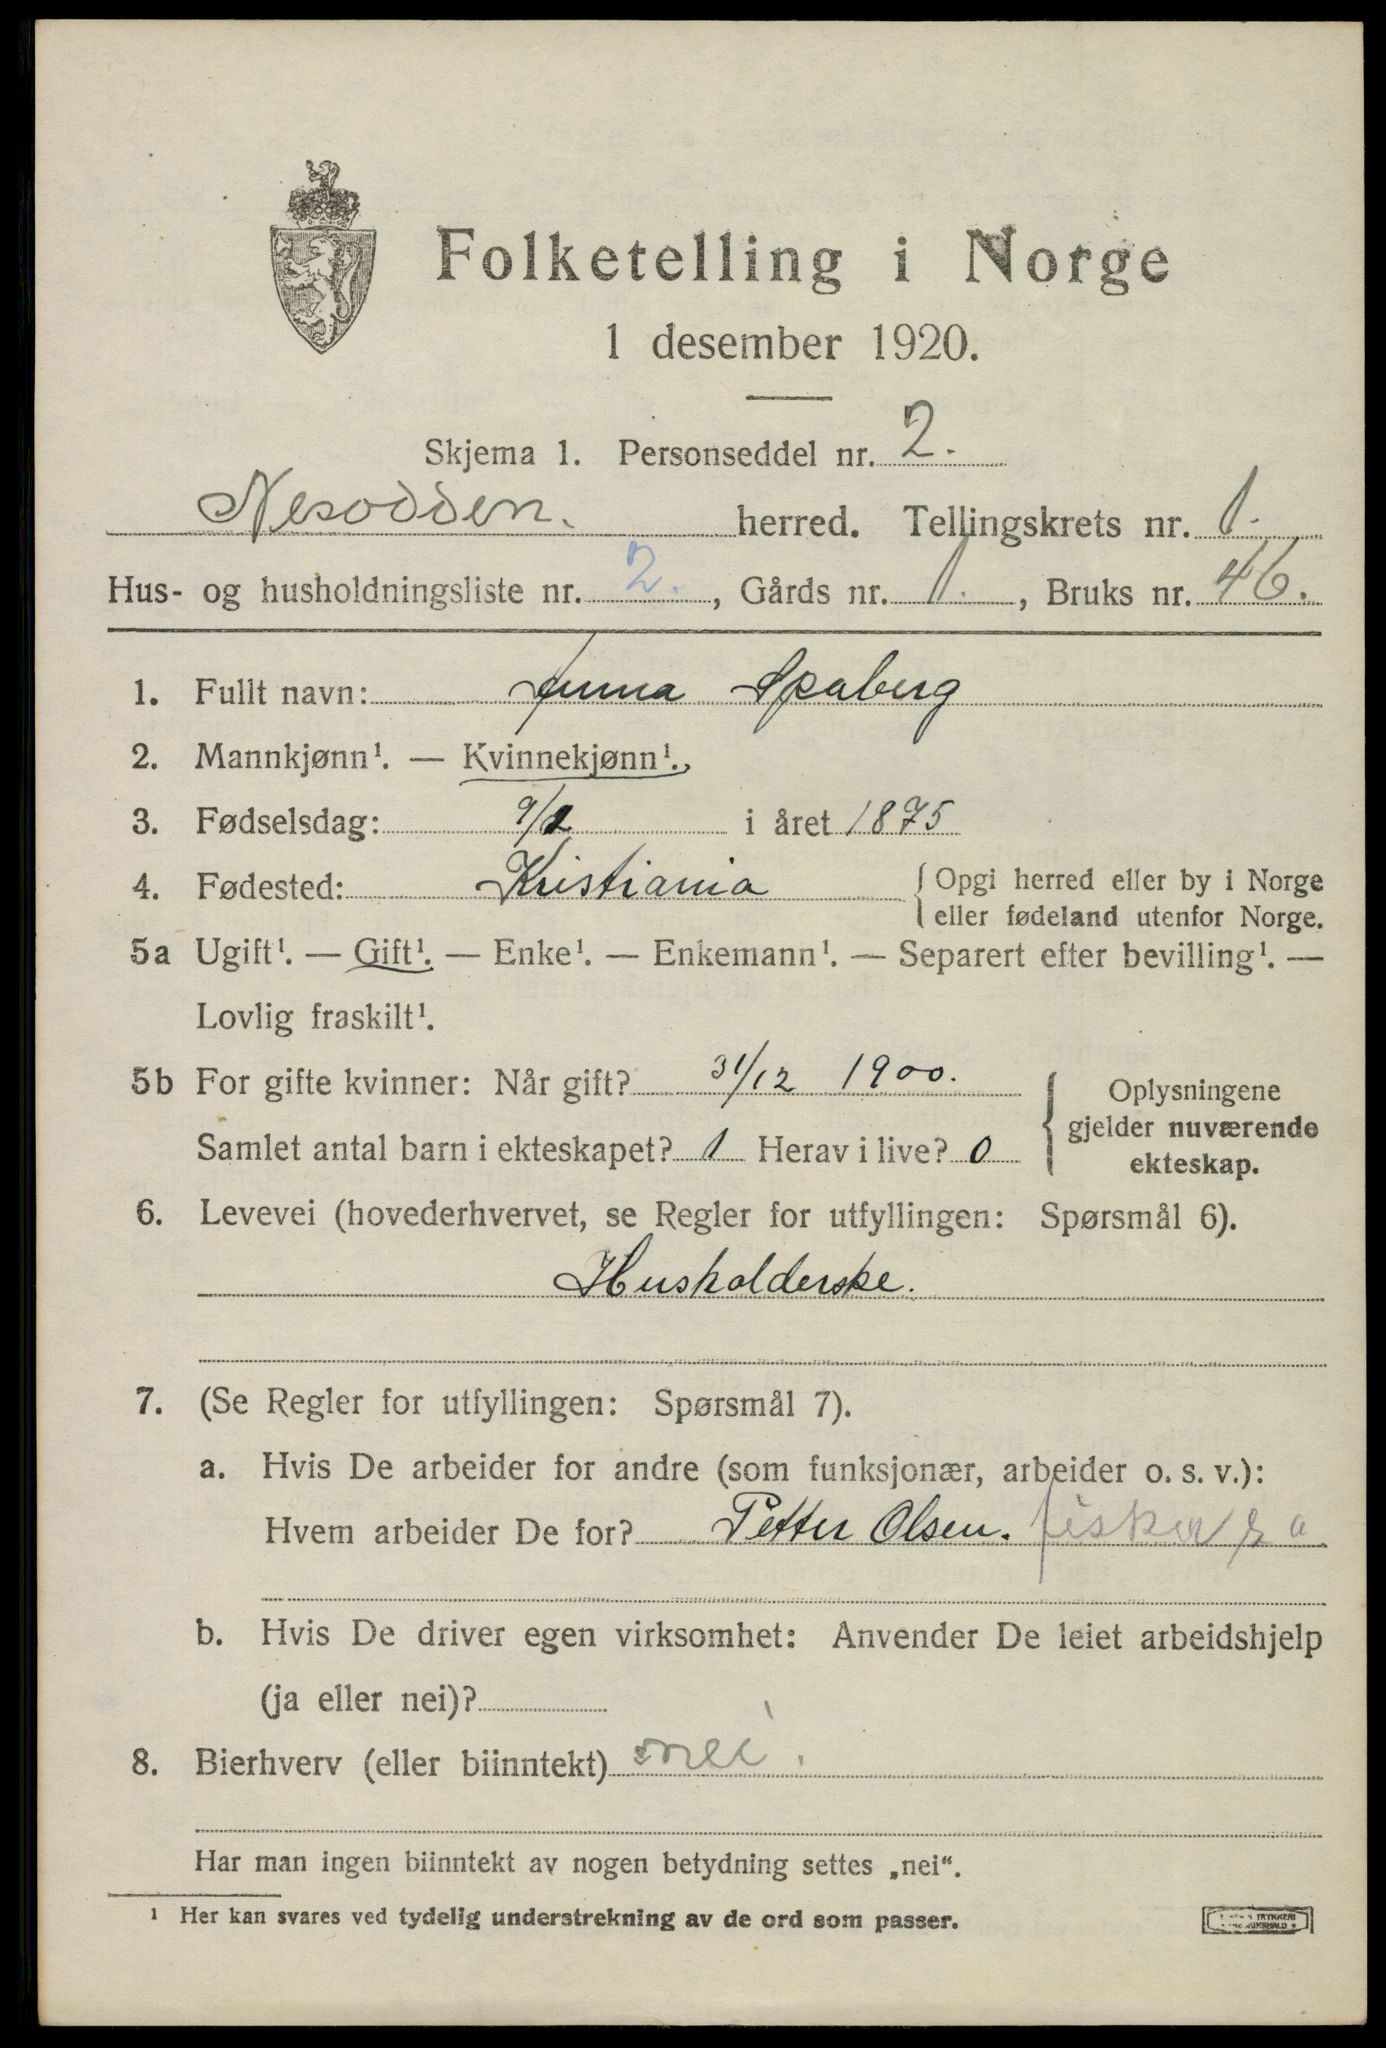 Folketelling i Norge
1 desember 1920.
Skjema 1. Personseddel nr. 2.
Nesodden. herred. Tellingskrets nr. 1.
Hus- og husholdningsliste nr. 2., Gårds nr. 1., Bruks nr. 46.
1. Fullt navn: Anna Spaberg
2. Mannkjønn¹. — Kvinnekjønn¹.
3. Fødselsdag: 9/2 i året 1875
4. Fødested: Kristiania { Opgi herred eller by i Norge
eller fødeland utenfor Norge.
5a Ugift¹. — Gift¹. — Enke¹. — Enkemann¹. — Separert efter bevilling¹. —
Lovlig fraskilt¹.
5b For gifte kvinner: Når gift? 31/12 1900.
Samlet antal barn i ekteskapet? 1 Herav i live? 0
{ Oplysningene
gjelder nuværende
ekteskap.
6. Levevei (hovederhvervet, se Regler for utfyllingen: Spørsmål 6).
Husholderske.
7. (Se Regler for utfyllingen: Spørsmål 7).
a. Hvis De arbeider for andre (som funksjonær, arbeider o. s. v.):
Hvem arbeider De for? Petter Olsen. fisker
b. Hvis De driver egen virksomhet: Anvender De leiet arbeidshjelp
(ja eller nei)?
8. Bierhverv (eller biinntekt) nei.
Har man ingen biinntekt av nogen betydning settes „nei“.
¹ Her kan svares ved tydelig understrekning av de ord som passer.
TRYKKERI